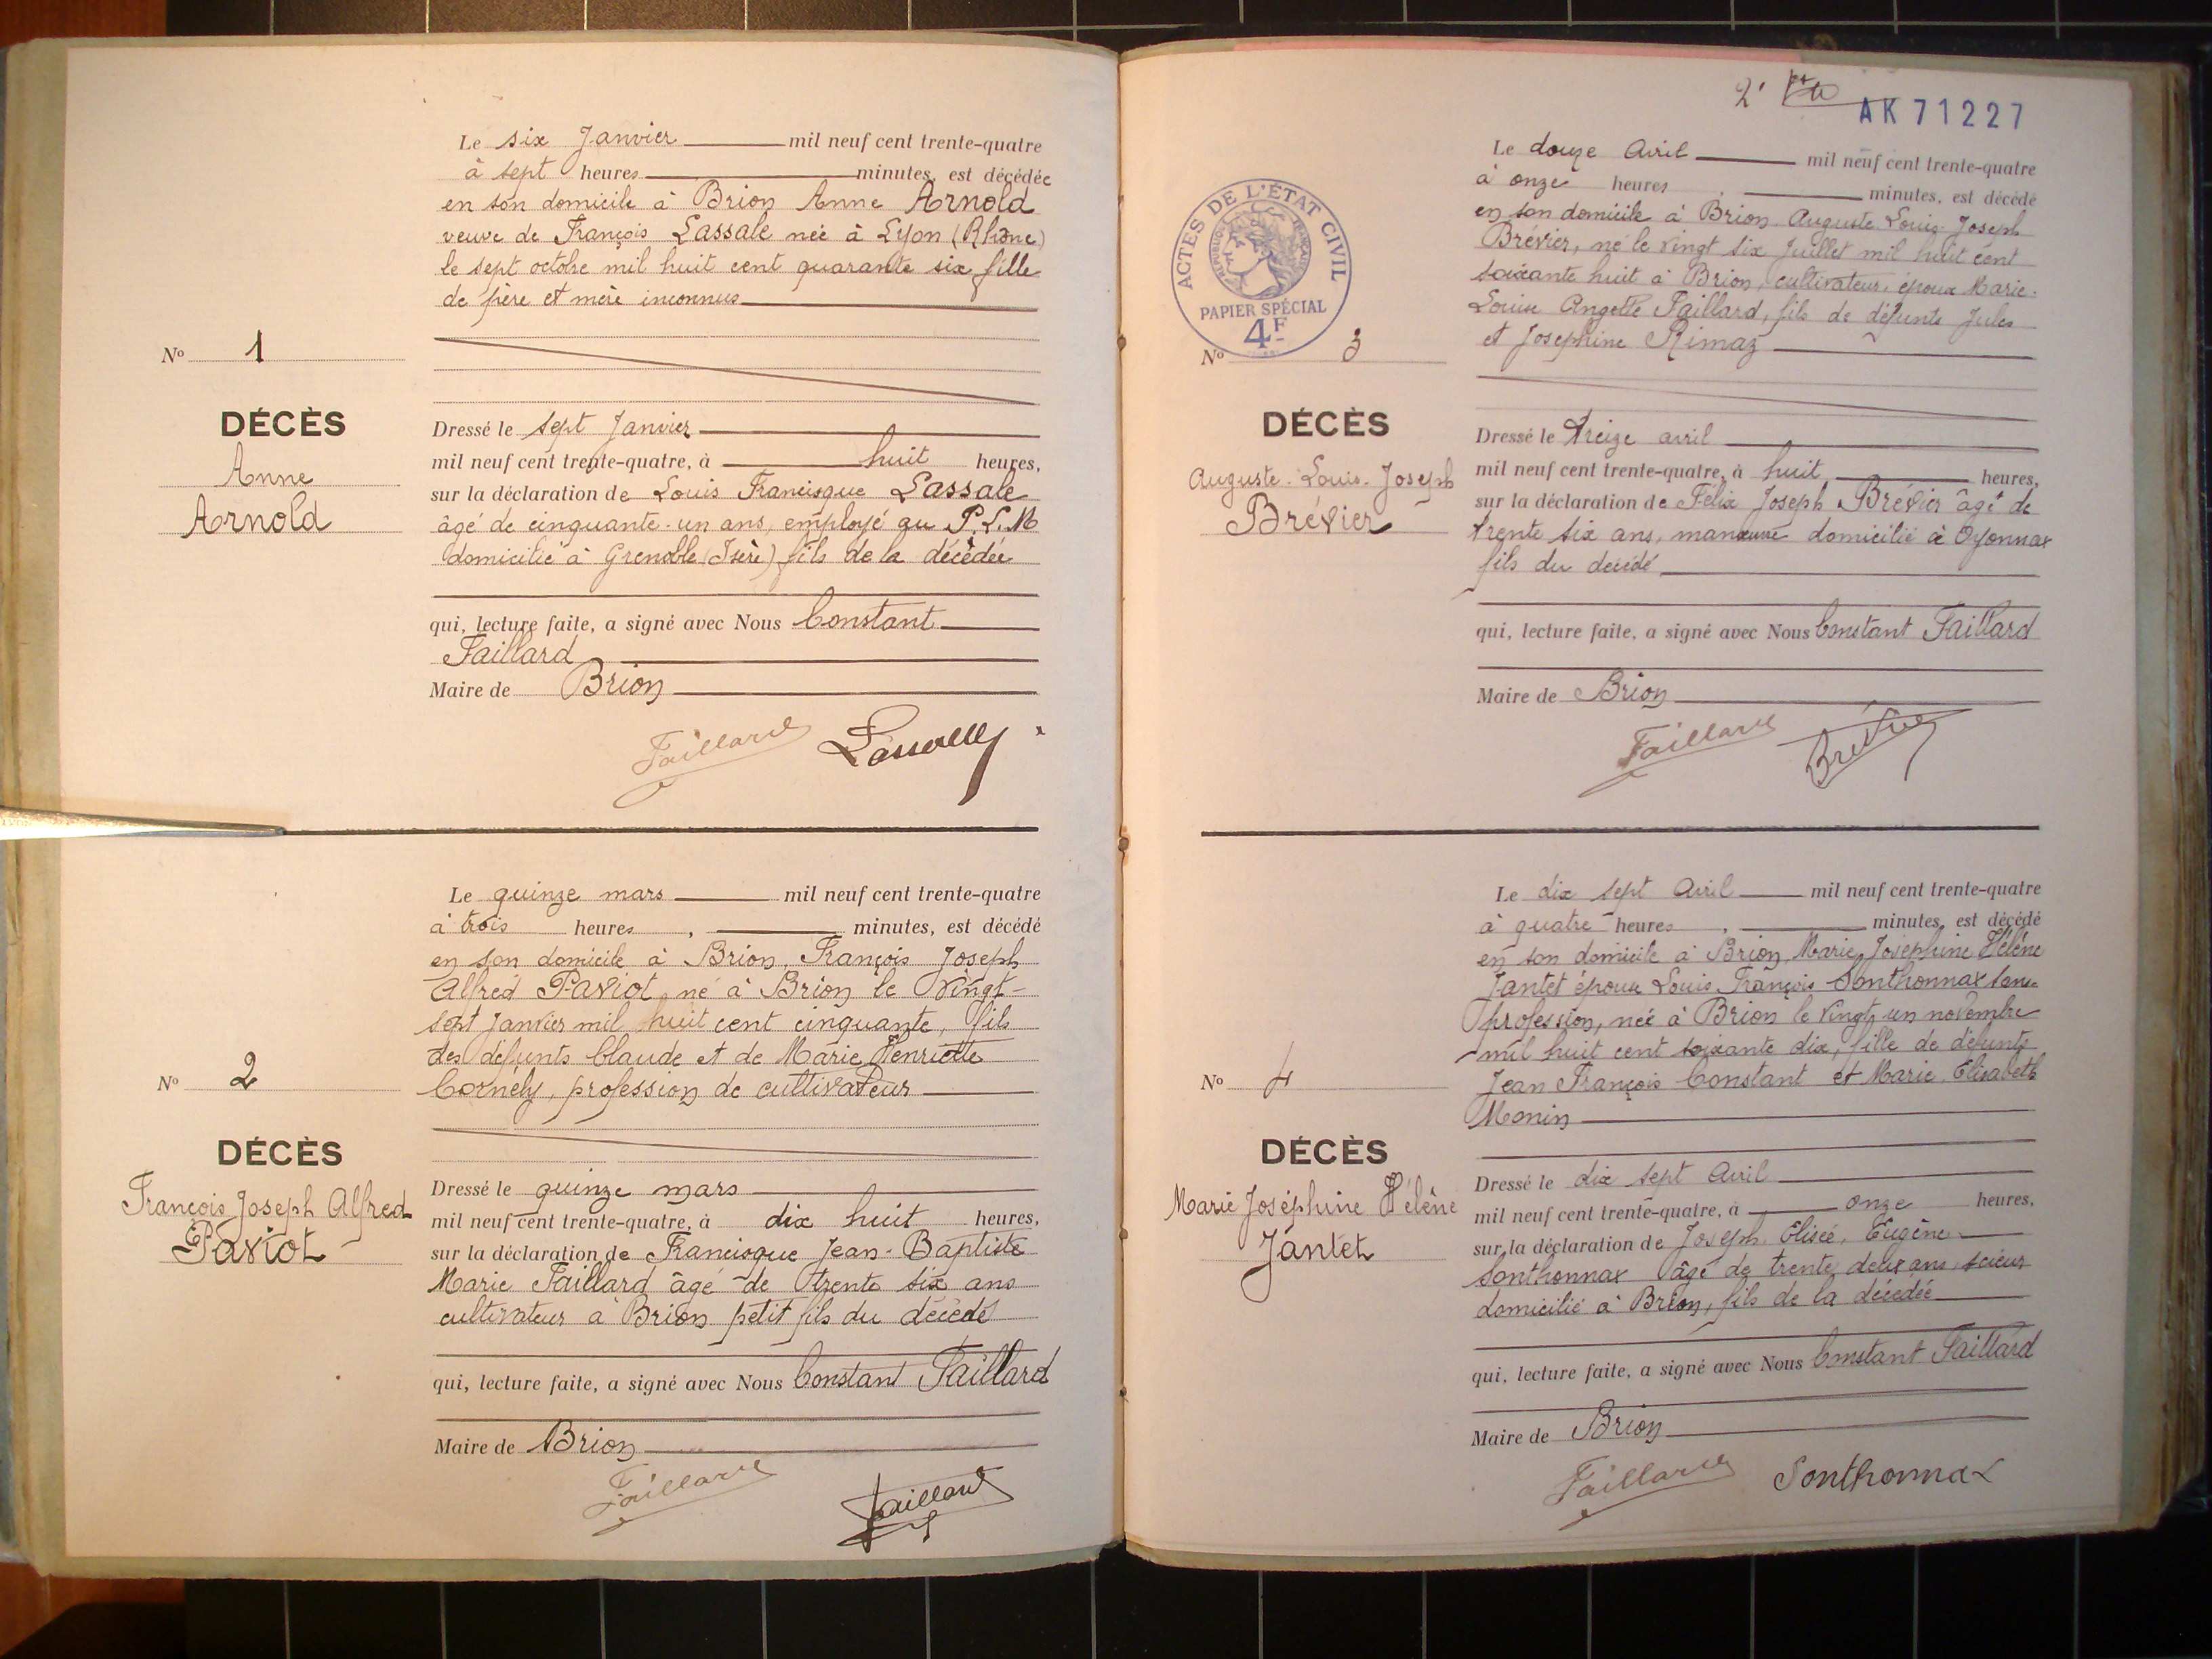 Le six Janvier mil neuf cent trente-quatre
à sept heures minutes, est décédée
en son domicile à Brion Anne Arnold
veuve de François Lassale née à Lyon (Rhône)
le sept octobre mil huit cent quarante six fille
de père et mère inconnus
No 1
DÉCÈS
Anne
Arnold
Dressé le sept Janvier
mil neuf cent trente-quatre, à huit heures,
sur la déclaration de Louis Francisque Lassale
âgé de cinquante-un ans, employé au P.L.M
domicilié à Grenoble (Isère) fils de la décédée
qui, lecture faite, a signé avec Nous Constant
Faillard
Maire de Brion
Faillard
Le quinze mars mil neuf cent trente-quatre
à trois heures, minutes, est décédé
en son domicile à Brion, François Joseph
Alfred Paviot né à Brion le vingt-
sept Janvier mil huit cent cinquante, fils
des défunts Claude et de Marie Henriette
Cornély, profession de cultivateur
No 2
DÉCÈS
François Joseph Alfred
Paviot
Dressé le quinze mars
mil neuf cent trente-quatre, à dix huit heures,
sur la déclaration de Francisque Jean-Baptiste
Marie Faillard âgé de trente six ans
cultivateur à Brion petit fils du décédé
qui, lecture faite, a signé avec Nous Constant Faillard
Maire de Brion
Faillard Faillard
2e
AK 71227
ACTES DE L'ÉTAT CIVIL
RÉPUBLIQUE FRANÇAISE
PAPIER SPÉCIAL
4F
Le douze Avril mil neuf cent trente-quatre
à onze heures, minutes, est décédé
en son domicile à Brion Auguste Louis Joseph
Brévier, né le vingt six Juillet mil huit cent
soixante huit à Brion, cultivateur, époux Marie-
Louise Angelle Faillard, fils de défunts Jules
et Josephine Rimaz
No 3
DÉCÈS
Auguste-Louis-Joseph
Brévier
Dressé le treize avril
mil neuf cent trente-quatre, à huit heures,
sur la déclaration de Félix Joseph Brévier âgé de
trente six ans, manœuvre domicilié à Oyonnax
fils du décédé
qui, lecture faite, a signé avec Nous Constant Faillard
Maire de Brion
Faillard Brévier
Le dix sept Avril mil neuf cent trente-quatre
à quatre heures, minutes, est décédé
en son domicile à Brion, Marie Joséphine Hélène
Jantet époux Louis François Sonthonnax sans
profession, née à Brion le vingt un novembre
mil huit cent soixante dix, fille de défunts
Jean François Constant et Marie Elisabeth
Monin
No 4
DÉCÈS
Marie Joséphine Hélène
Jantet
Dressé le dix sept Avril
mil neuf cent trente-quatre, à onze heures,
sur la déclaration de Joseph Elisée, Eugène
Sonthonnax âgé de trente deux ans, scieur
domicilié à Brion, fils de la décédée
qui, lecture faite, a signé avec Nous Constant Faillard
Maire de Brion
Faillard Sonthonnax